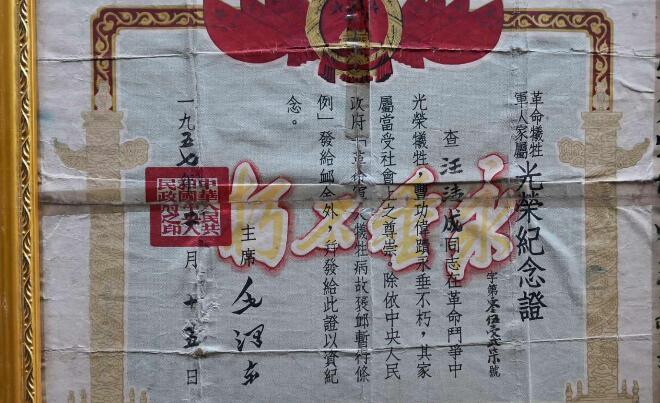 革命犧牲
軍人家屬
光榮紀念證
字第零伍 號
查汪 成同志在革命鬥爭中
光榮犧牲，豐功偉蹟永垂不朽，其家
屬當受社會上之尊崇。除依中央人民
政府「革命軍人犧牲病故褒卹暫行條
例」發給卹金外，并發給此證以資紀
念。
主席 毛澤東
一九五七年 月十五日
永垂不朽
中華人民共
和國中央人
民政府之印